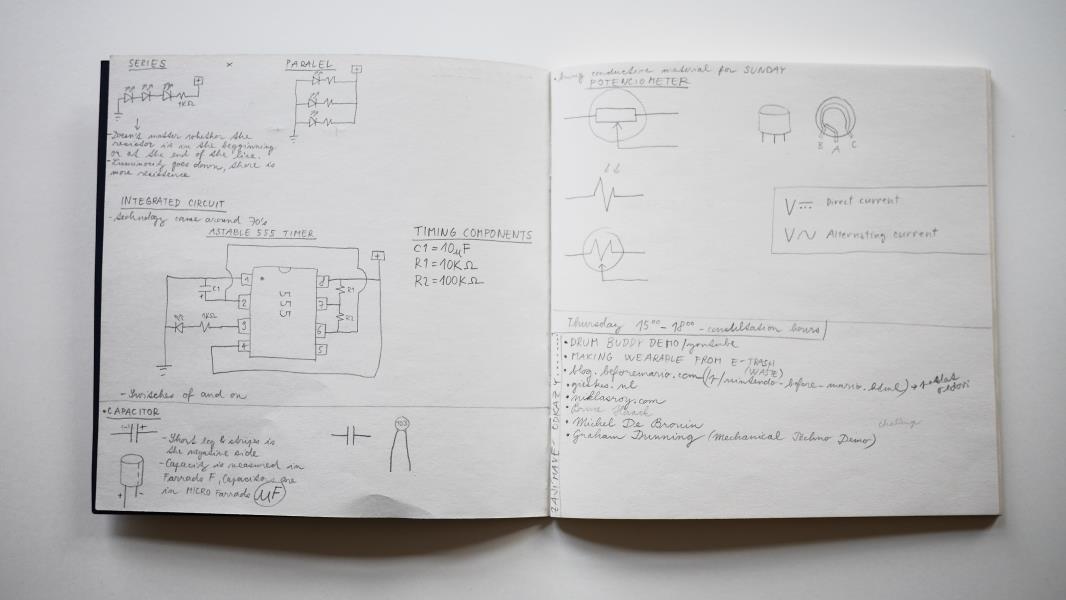 SERIES
x
PARALEL
+
+
1KΩ
- Doesn't matter whether the
resistor is in the beggining
or at the end of the line.
- Luminosity goes down, there is
more resistence
INTEGRATED CIRCUIT
- technology came around 70's
ASTABLE 555 TIMER
TIMING COMPONENTS
C1 = 10µF
R1 = 10KΩ
R2 = 100KΩ
+
1
2
3
4
555
8
7
6
5
C1
+
1KΩ
R1
R2
- Switches of and on
• CAPACITOR
(-) +
- Short leg & stripes is
the negative side
- Capacity is measured in
Farrads F, Capacitors are
in MICRO Farrads µF
+ -
103
• bring conductive material for SUNDAY
POTENCIOMETER
B A C
V Direct current
V Alternating current
Thursday 15⁰⁰ - 18⁰⁰ - consultation hours
ZAJÍMAVÉ ODKAZY
• DRUM BUDDY DEMO/youtube
• MAKING WEARABLE FROM E-TRASH
(WASTE)
• blog.beforemario.com (/p/nintendo-before-mario.html)
• gieskes.nl
• niklasroy.com
• Bruce Haack
• Michel De Broin
• Graham Dunning (Mechanical Techno Demo)